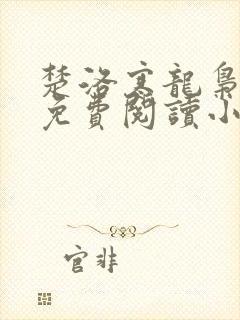 楚洛寒龍梟
免費閱讀小
官非